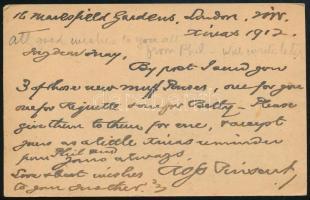 16 Maresfield Gardens, London, NW.
Xmas 1912.
all good wishes to you all
from Phil - will write later
My dear May,
By post I send you
3 of those new muff Purses, one for you
one for & one for Betty - Please
give them to them for me, & accept
yours as a little Xmas reminder
from Phil and
yours always,
Love & best wishes Ross
to your Mother.